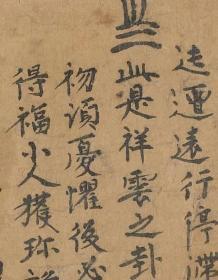 迍邅遠行停滯
此是祥雲之卦
初須憂懼後必
得福小人獲珎